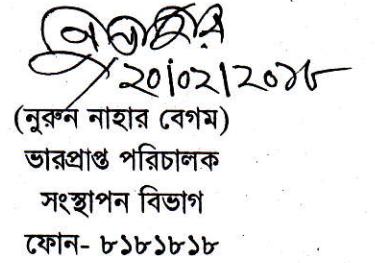 ২০/০২/২০১৮
(নুরুন নাহার বেগম)
ভারপ্রাপ্ত পরিচালক
সংস্থাপন বিভাগ
ফোন- ৮১৮১৮১৮